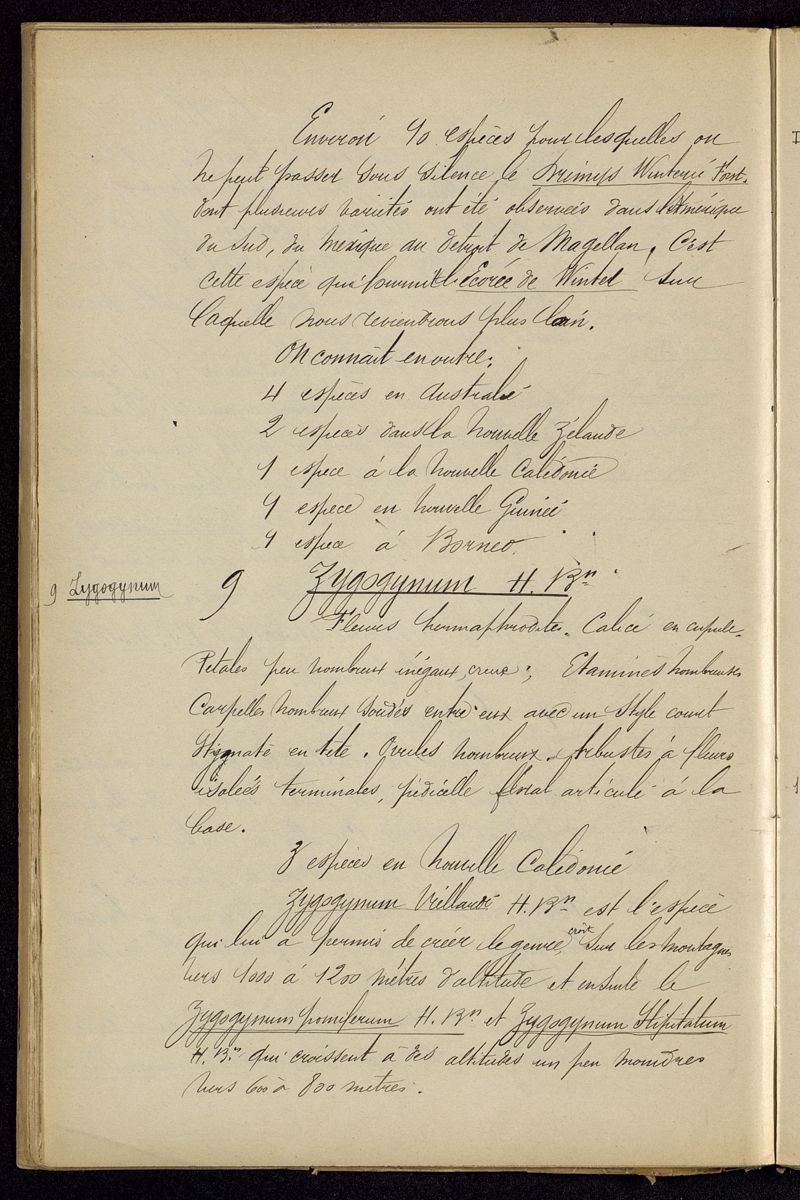 Environ 10 espèces pour lesquelles on
ne peut passer sous silence le Drimys Winterii Forst.
dont plusieurs variétés ont été observées dans l'Amérique
du Sud, du Mexique au detroit de Magellan. C'est
cette espèce qui fournit l'Ecorce de Winter sur
laquelle nous reviendrons plus loin.
On connaît en outre:
4 espèces en Australie
2 especes dans la Nouvelle Zélande
1 espece à la Nouvelle Calédonie
1 espece en Nouvelle Guinée
1 espece à Borneo.
9 Zygogynum
9 Zygogynum H. Bn
Fleurs hermaphrodites. Calice en cupule.
Petales peu nombreux inégaux, creux; Etamines nombreuses
Carpelles nombreux soudés entre eux avec un style court
Stigmate en tête. Ovules nombreux. Arbustes à fleurs
isolées terminales, pédicelle floral articulé à la
base.
3 espèces en Nouvelle Calédonie
Zygogynum Vieillardi H. Bn est l'espèce
qui lui a permis de créer le genre, croit sur les montagnes
vers 1000 à 1200 mètres d'altitude et ensuite le
Zygogynum pomiferum H. Bn et Zygogynum Stipitatum
H. Bn qui croissent à des altitudes un peu moindres
vers 600 à 800 metres.